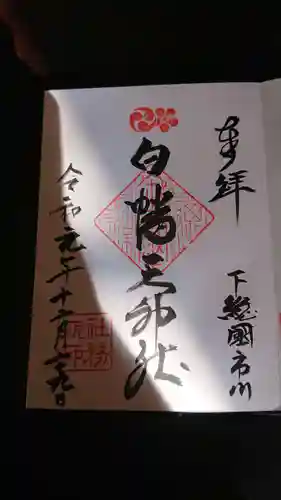 奉拝
下総國市川
白幡天神社
令和元年十二月廿九日
社務